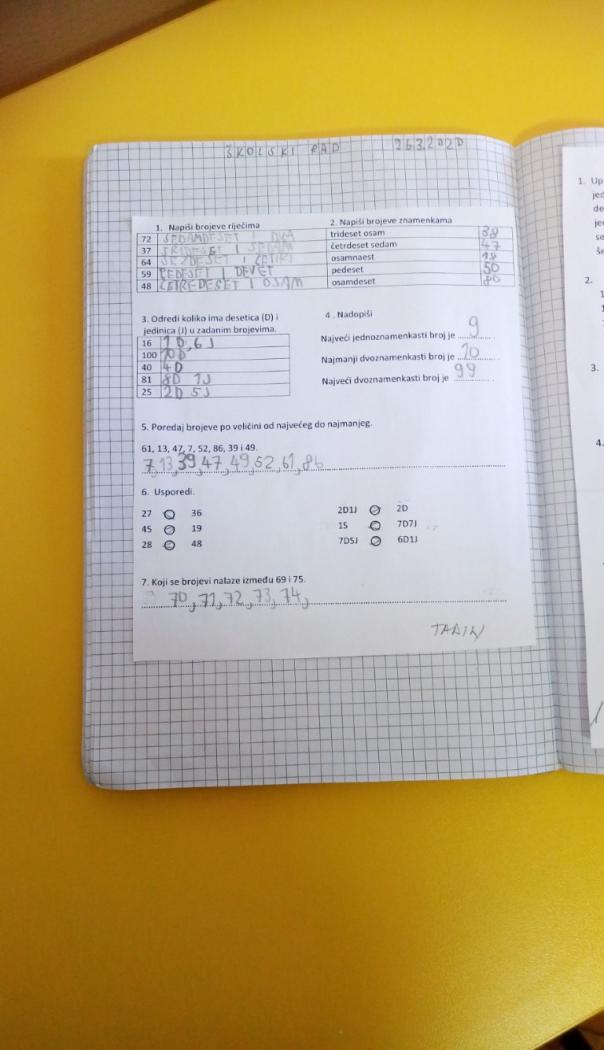 ŠKOLSKI RAD 26.3.2020
1. Napiši brojeve riječima
72 SEDAMDESET I DVA
37 TRIDESET I SEDAM
64 ŠEZDESET I ČETIRI
59 PEDESET I DEVET
48 ČETRDESET I OSAM
2. Napiši brojeve znamenkama
trideset osam 38
četrdeset sedam 47
osamnaest 18
pedeset 50
osamdeset 80
3. Odredi koliko ima desetica (D) i
jedinica (J) u zadanim brojevima.
16 1D,6J
100 10D
40 4D
81 8D 1J
25 2D 5J
4 . Nadopiši
Najveći jednoznamenkasti broj je 9
Najmanji dvoznamenkasti broj je 10
Najveći dvoznamenkasti broj je 99
5. Poredaj brojeve po veličini od najvećeg do najmanjeg.
61, 13, 47, 7, 52, 86, 39 i 49.
7,13,39,47,49,52,61,86
6. Usporedi.
27 < 36
45 > 19
28 < 48
2D1J > 2D
15 < 7D7J
7D5J > 6D1J
7. Koji se brojevi nalaze između 69 i 75.
70, 71, 72, 73, 74,
1. Up
jed
de
je
2.
3.
4.